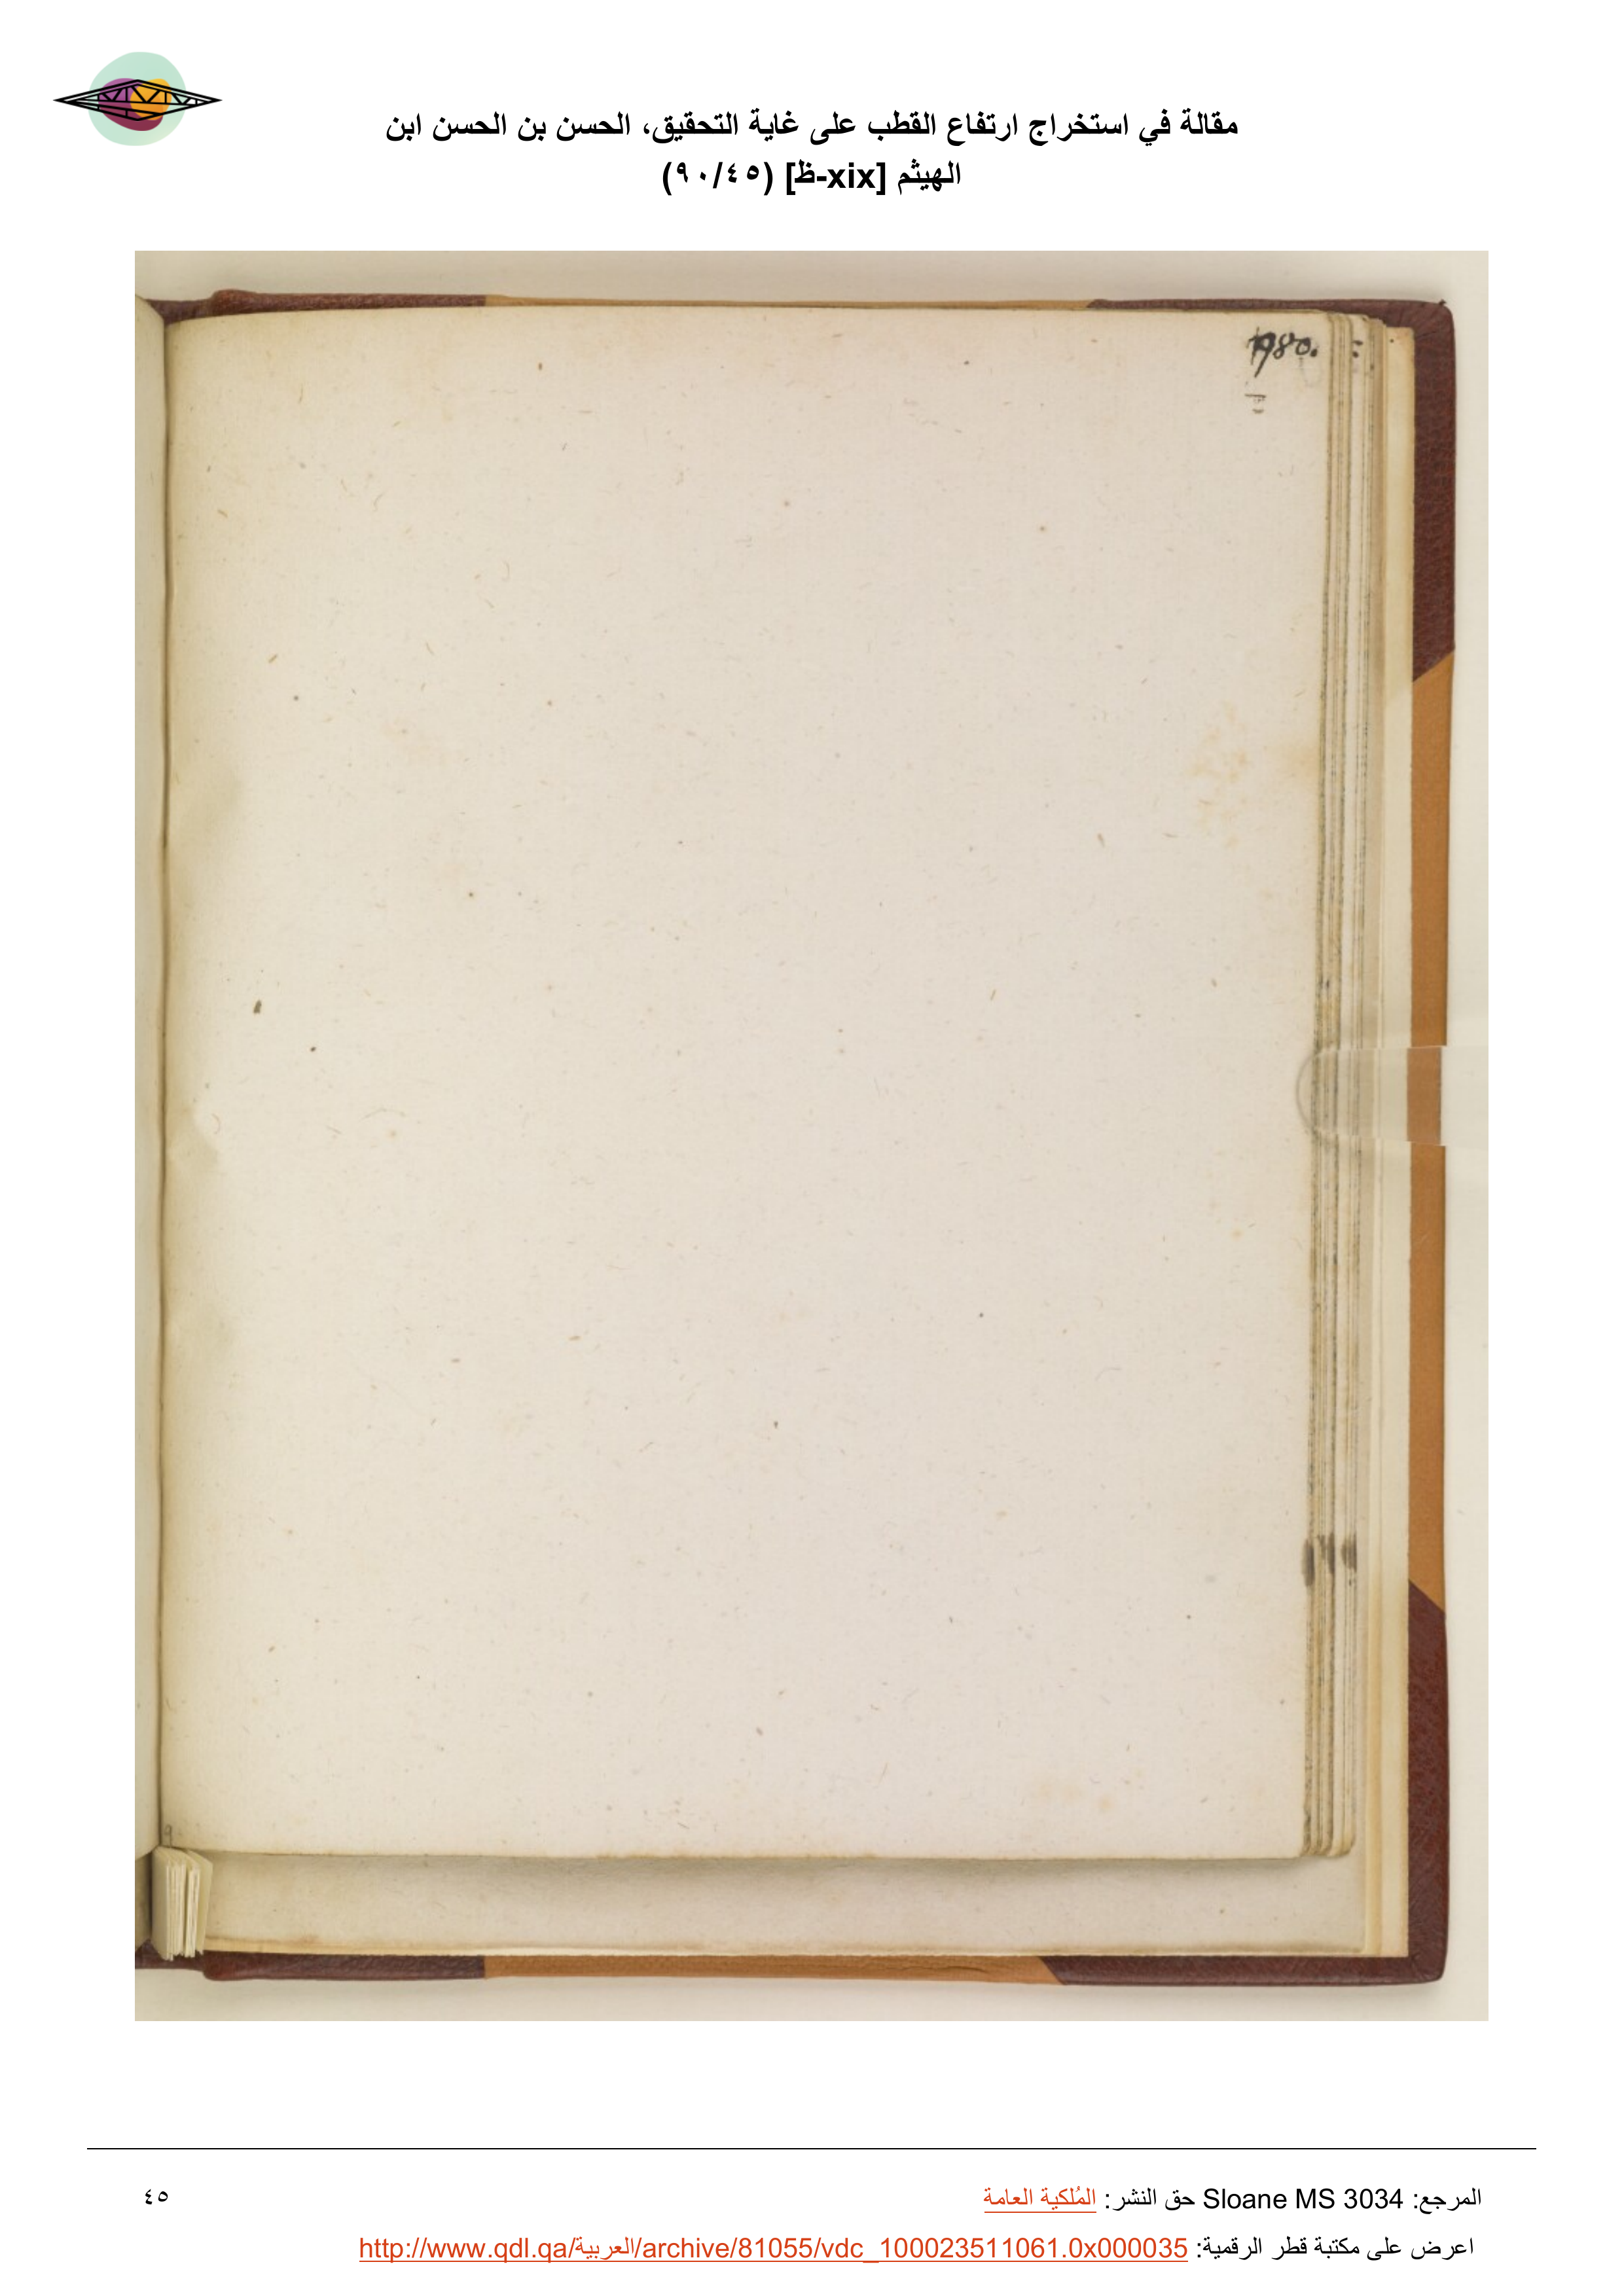 مقالة في استخراج ارتفاع القطب على غاية التحقيق، الحسن بن الحسن ابن
الهيثم [xix-ظ] (٩٠/٤٥)
1980.
المرجع: Sloane MS 3034 حق النشر: المُلكية العامة
٤٥
اعرض على مكتبة قطر الرقمية: http://www.qdl.qa/العربية/archive/81055/vdc_100023511061.0x000035